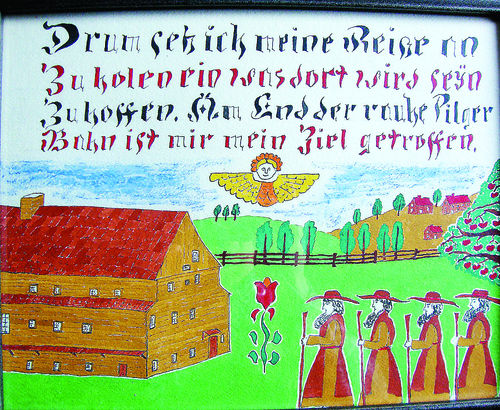 Drum setz ich meine Reise an
Zu holen ein was dort wird seÿn
Zu hoffen. Am End der rauhe Pilger
Bahn ist mir mein Ziel getroffen.